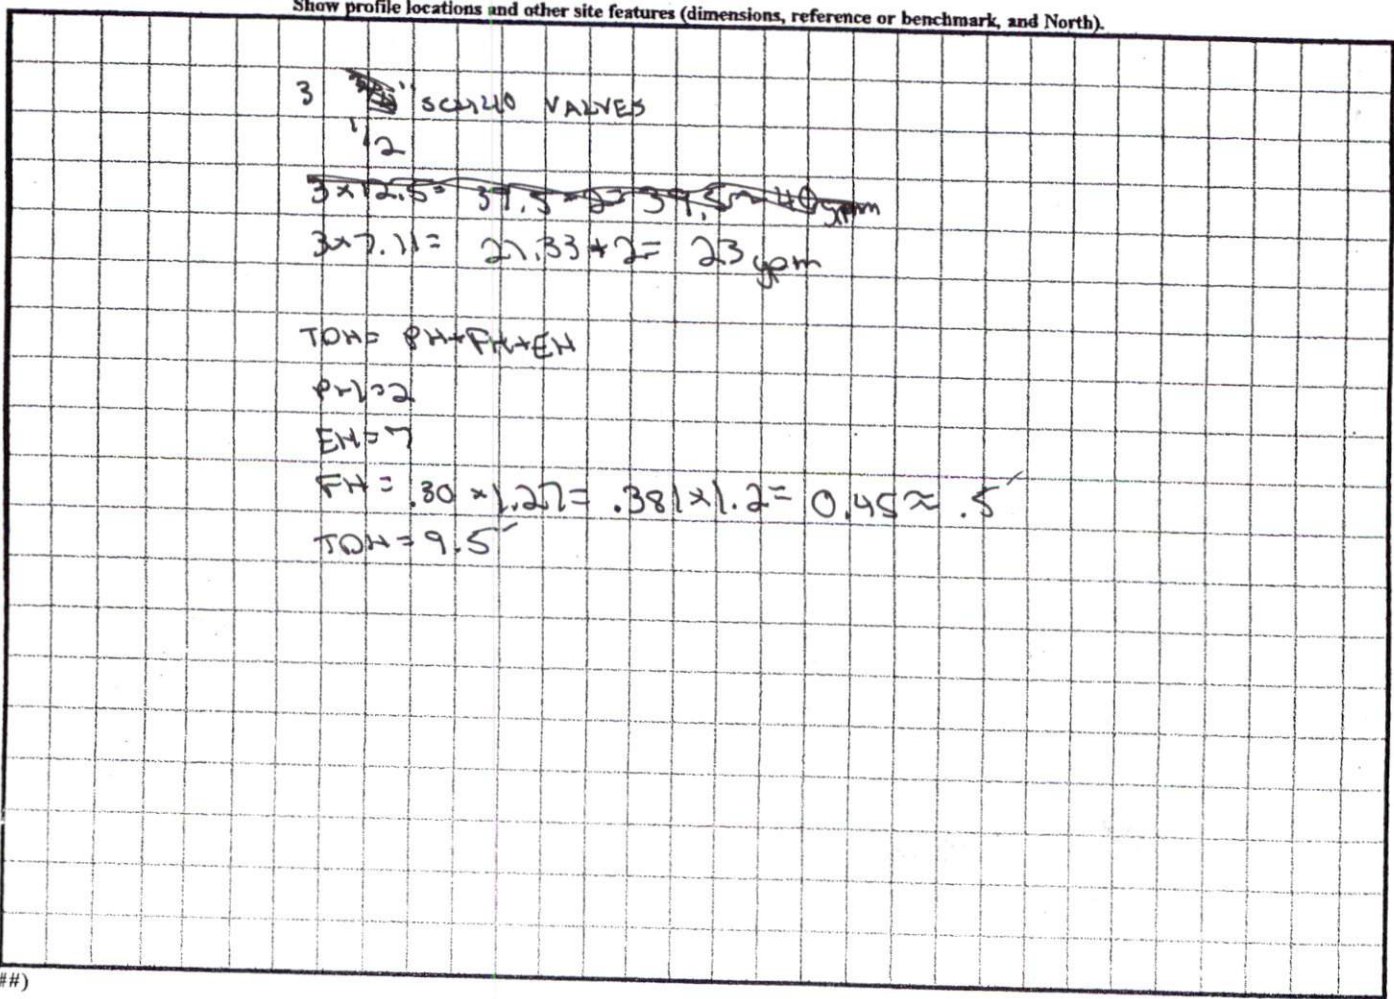 Show profile locations and other site features (dimensions, reference or benchmark, and North).
3 " SCH40 VALVES
1/2
3×12.5= 37.5+2= 39.5~40gpm
3×7.11= 21.33+2= 23gpm
TDH= PH+FH+EH
PH=2
EH=7
FH= .30 ×1.27= .381×1.2= 0.45≈ .5'
TDH=9.5'
##)